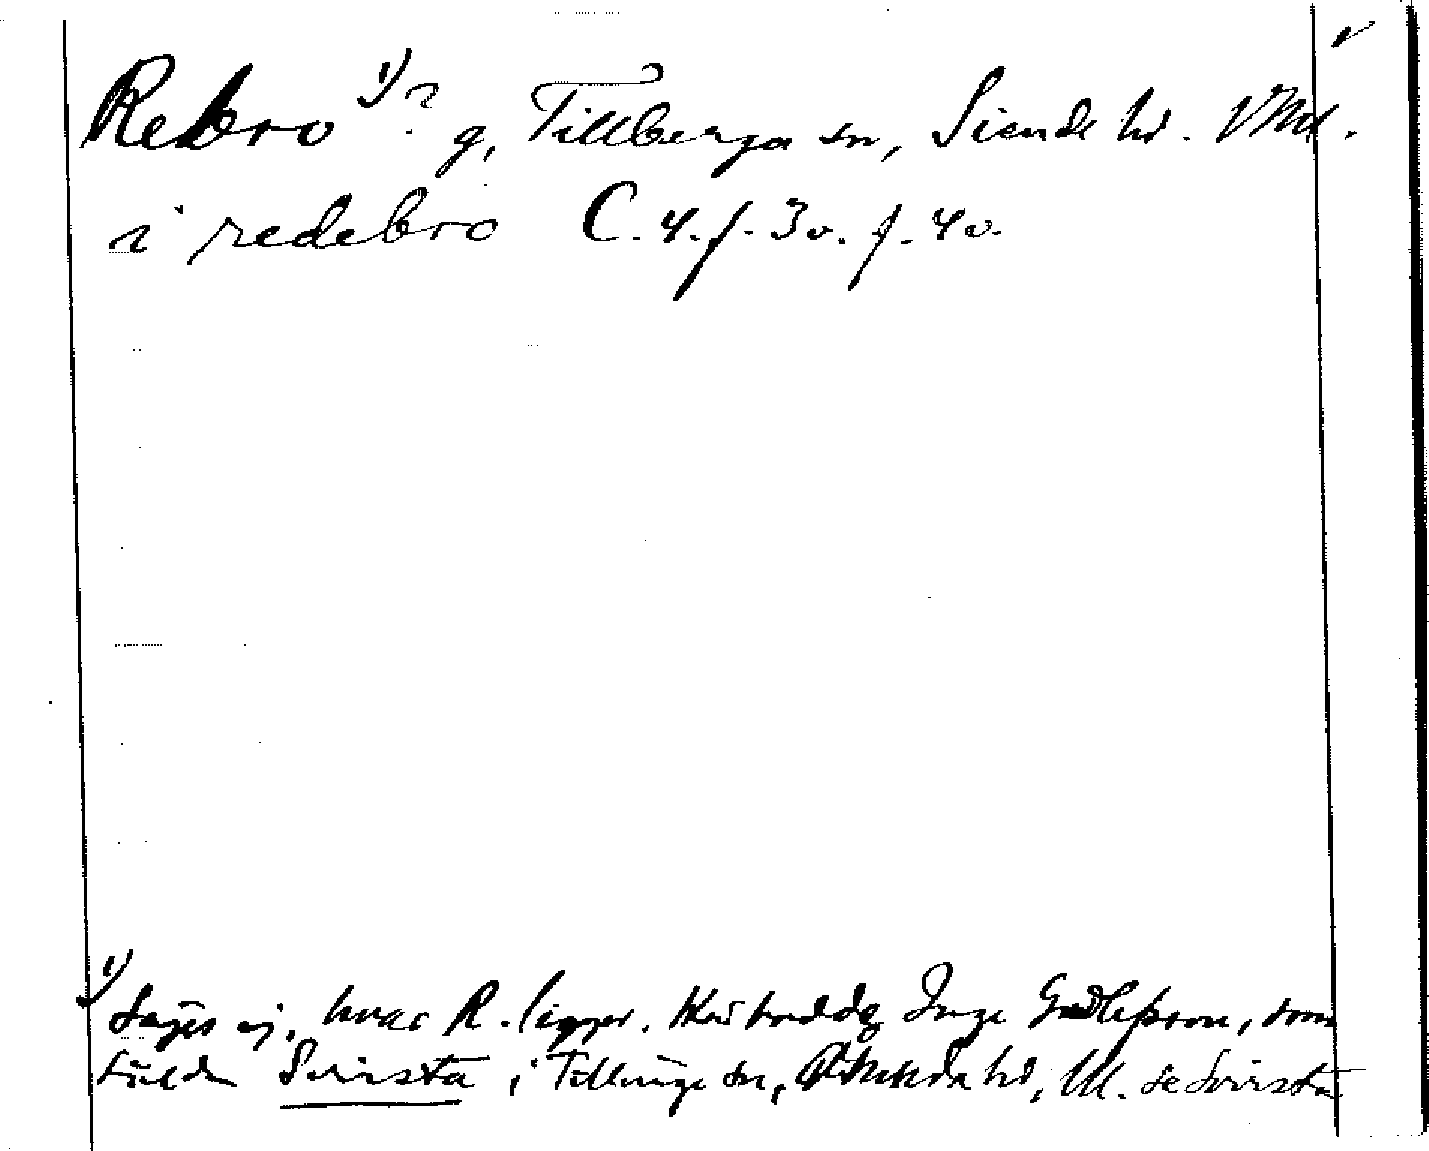 Rebro ¹⁾ ? g, Tillberga sn, Siende hd. VMl.
i redebro C. 4. f. 3v. f. 4v.
¹⁾ Säges ej, hvar R. ligger. Här bodde Inge Gudlefsson, som
sålde Svirsta i Tillinge sn, Åsunda hd, Ul. se Svirsta